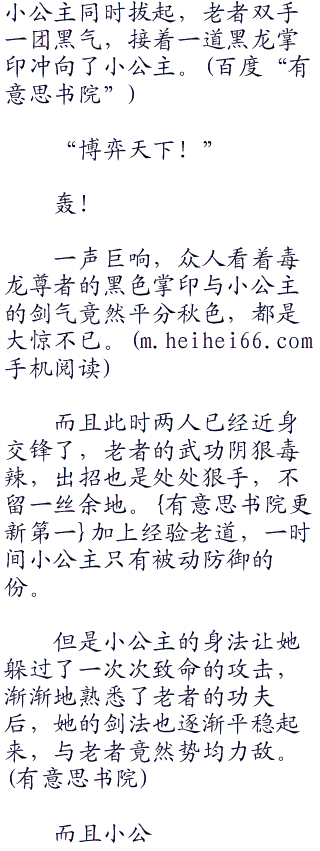 小公主同时拔起，老者双手
一团黑气，接着一道黑龙掌
印冲向了小公主。(百度“有
意思书院”)
“博弈天下！”
轰！
一声巨响，众人看着毒
龙尊者的黑色掌印与小公主
的剑气竟然平分秋色，都是
大惊不已。(m.heihei66.com
手机阅读)
而且此时两人已经近身
交锋了，老者的武功阴狠毒
辣，出招也是处处狠手，不
留一丝余地。{有意思书院更
新第一}加上经验老道，一时
间小公主只有被动防御的
份。
但是小公主的身法让她
躲过了一次次致命的攻击，
渐渐地熟悉了老者的功夫
后，她的剑法也逐渐平稳起
来，与老者竟然势均力敌。
(有意思书院)
而且小公